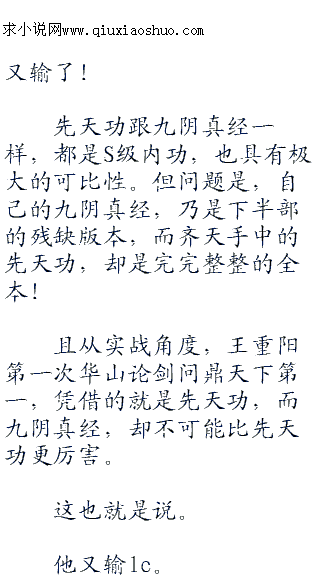 求小说网www.qiuxiaoshuo.com
又输了！
先天功跟九阴真经一
样，都是S级内功，也具有极
大的可比性。但问题是，自
己的九阴真经，乃是下半部
的残缺版本，而齐天手中的
先天功，却是完完整整的全
本！
且从实战角度，王重阳
第一次华山论剑问鼎天下第
一，凭借的就是先天功，而
九阴真经，却不可能比先天
功更厉害。
这也就是说。
他又输lc。